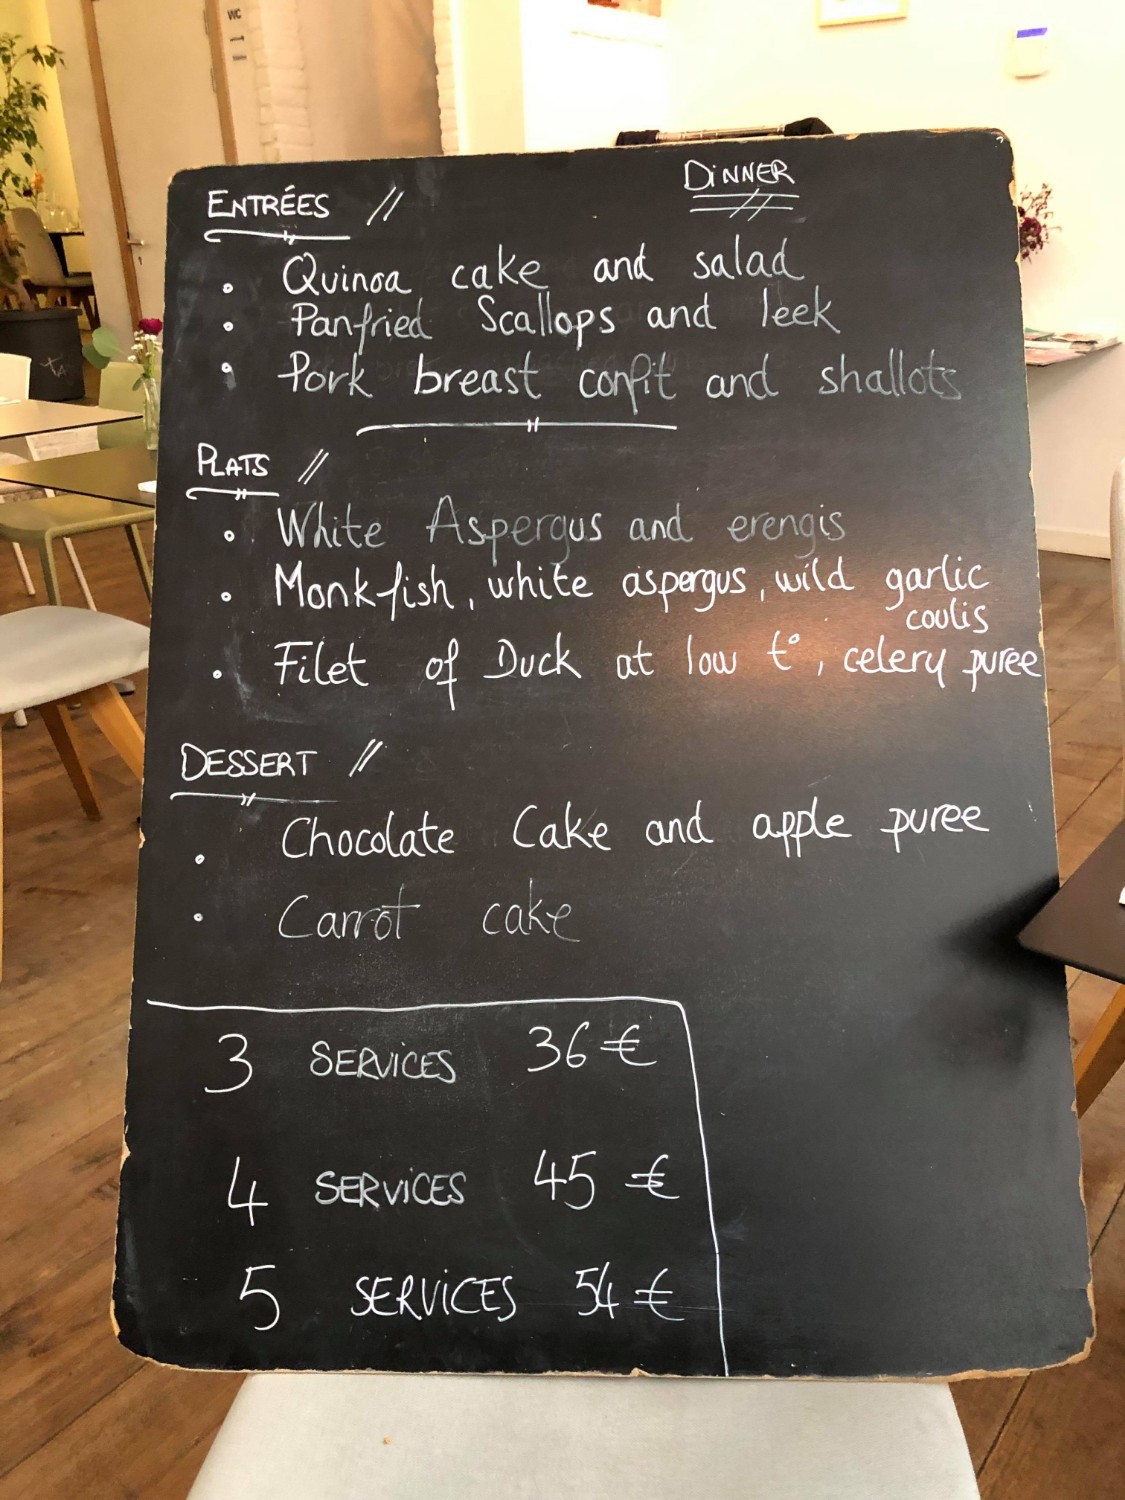 WC
ENTRÉES //
DINNER
• Quinoa cake and salad
• Panfried Scallops and leek
• Pork breast confit and shallots
PLATS //
• White Aspergus and erengis
• Monkfish, white aspergus, wild garlic
coulis
• Filet of Duck at low t°, celery puree
DESSERT //
• Chocolate Cake and apple puree
• Carrot cake
3 SERVICES 36 €
4 SERVICES 45 €
5 SERVICES 54 €